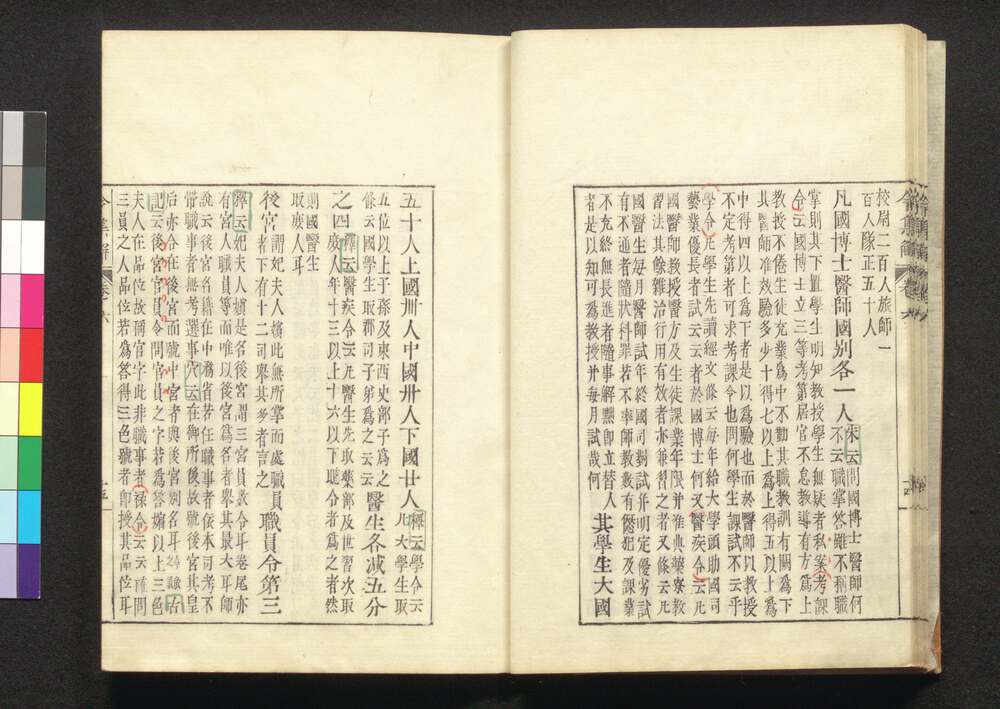 校尉二百人旅師一
百人隊正五十人
凡國博士醫師國別各一人
朱云問國博士醫師何
不云職掌答雖不稱職
掌則其下置學生明知教授學生無疑者私案考課
令云國博士立三等考第居官不怠教導有方爲上
教授不倦生徒充業爲中不勤其職教訓有闕爲下
其醫師准效驗多少十得七以上爲上得五以上爲
中得四以上爲下者是以爲驗也而於醫師以教授
不定考第者可求考課令也問何學生課試不云乎
學令凡學生先讀經文條云每年給大學頭助國司
藝業優長者試云云者於國博士何又醫疾令云凡
國醫師教授醫方及生徒課業年限并准典藥寮教
習法其餘雜治行用有效者亦兼習之者又條云凡
國醫生每月醫師試年終國司對試并明定優劣試
有不通者隨狀科罪若不率師教數有愆犯及課業
不充終無長進者隨事解黜即立替人
者是以知可爲教授并每月試哉何
其學生大國
五十人上國卌人中國卅人下國廿人
釋云學令云
凡大學生取
五位以上子孫及東西史部子爲之
條云國學生取郡司子弟爲之云云
醫生各減五分
之四
釋云醫疾令云凡醫生先取藥部及世習次取
庶人年十三以上十六以下聰令者爲之者然
則國醫生
取庶人耳
後宮
謂妃夫人嬪此無所掌而處職員
者下有十二司舉其多者言之
職員令第三
釋云妃夫人嬪是名後宮謂三宮員數令耳卷尾亦
有宮人職員等而唯以後宮爲名者舉其最大耳師
說云後宮名雖在中務省若任職事者依本司考不
帶職事者無考選事穴云在御所後故號後宮其皇
后亦合在後宮而號中宮者與後宮別名耳
記云後宮宮員令問宮員之字若爲答嬪以上三色
夫人在品位故稱官字此非職事者祿令云云或問
三員之人品位若爲答得三色號者即授其品位耳